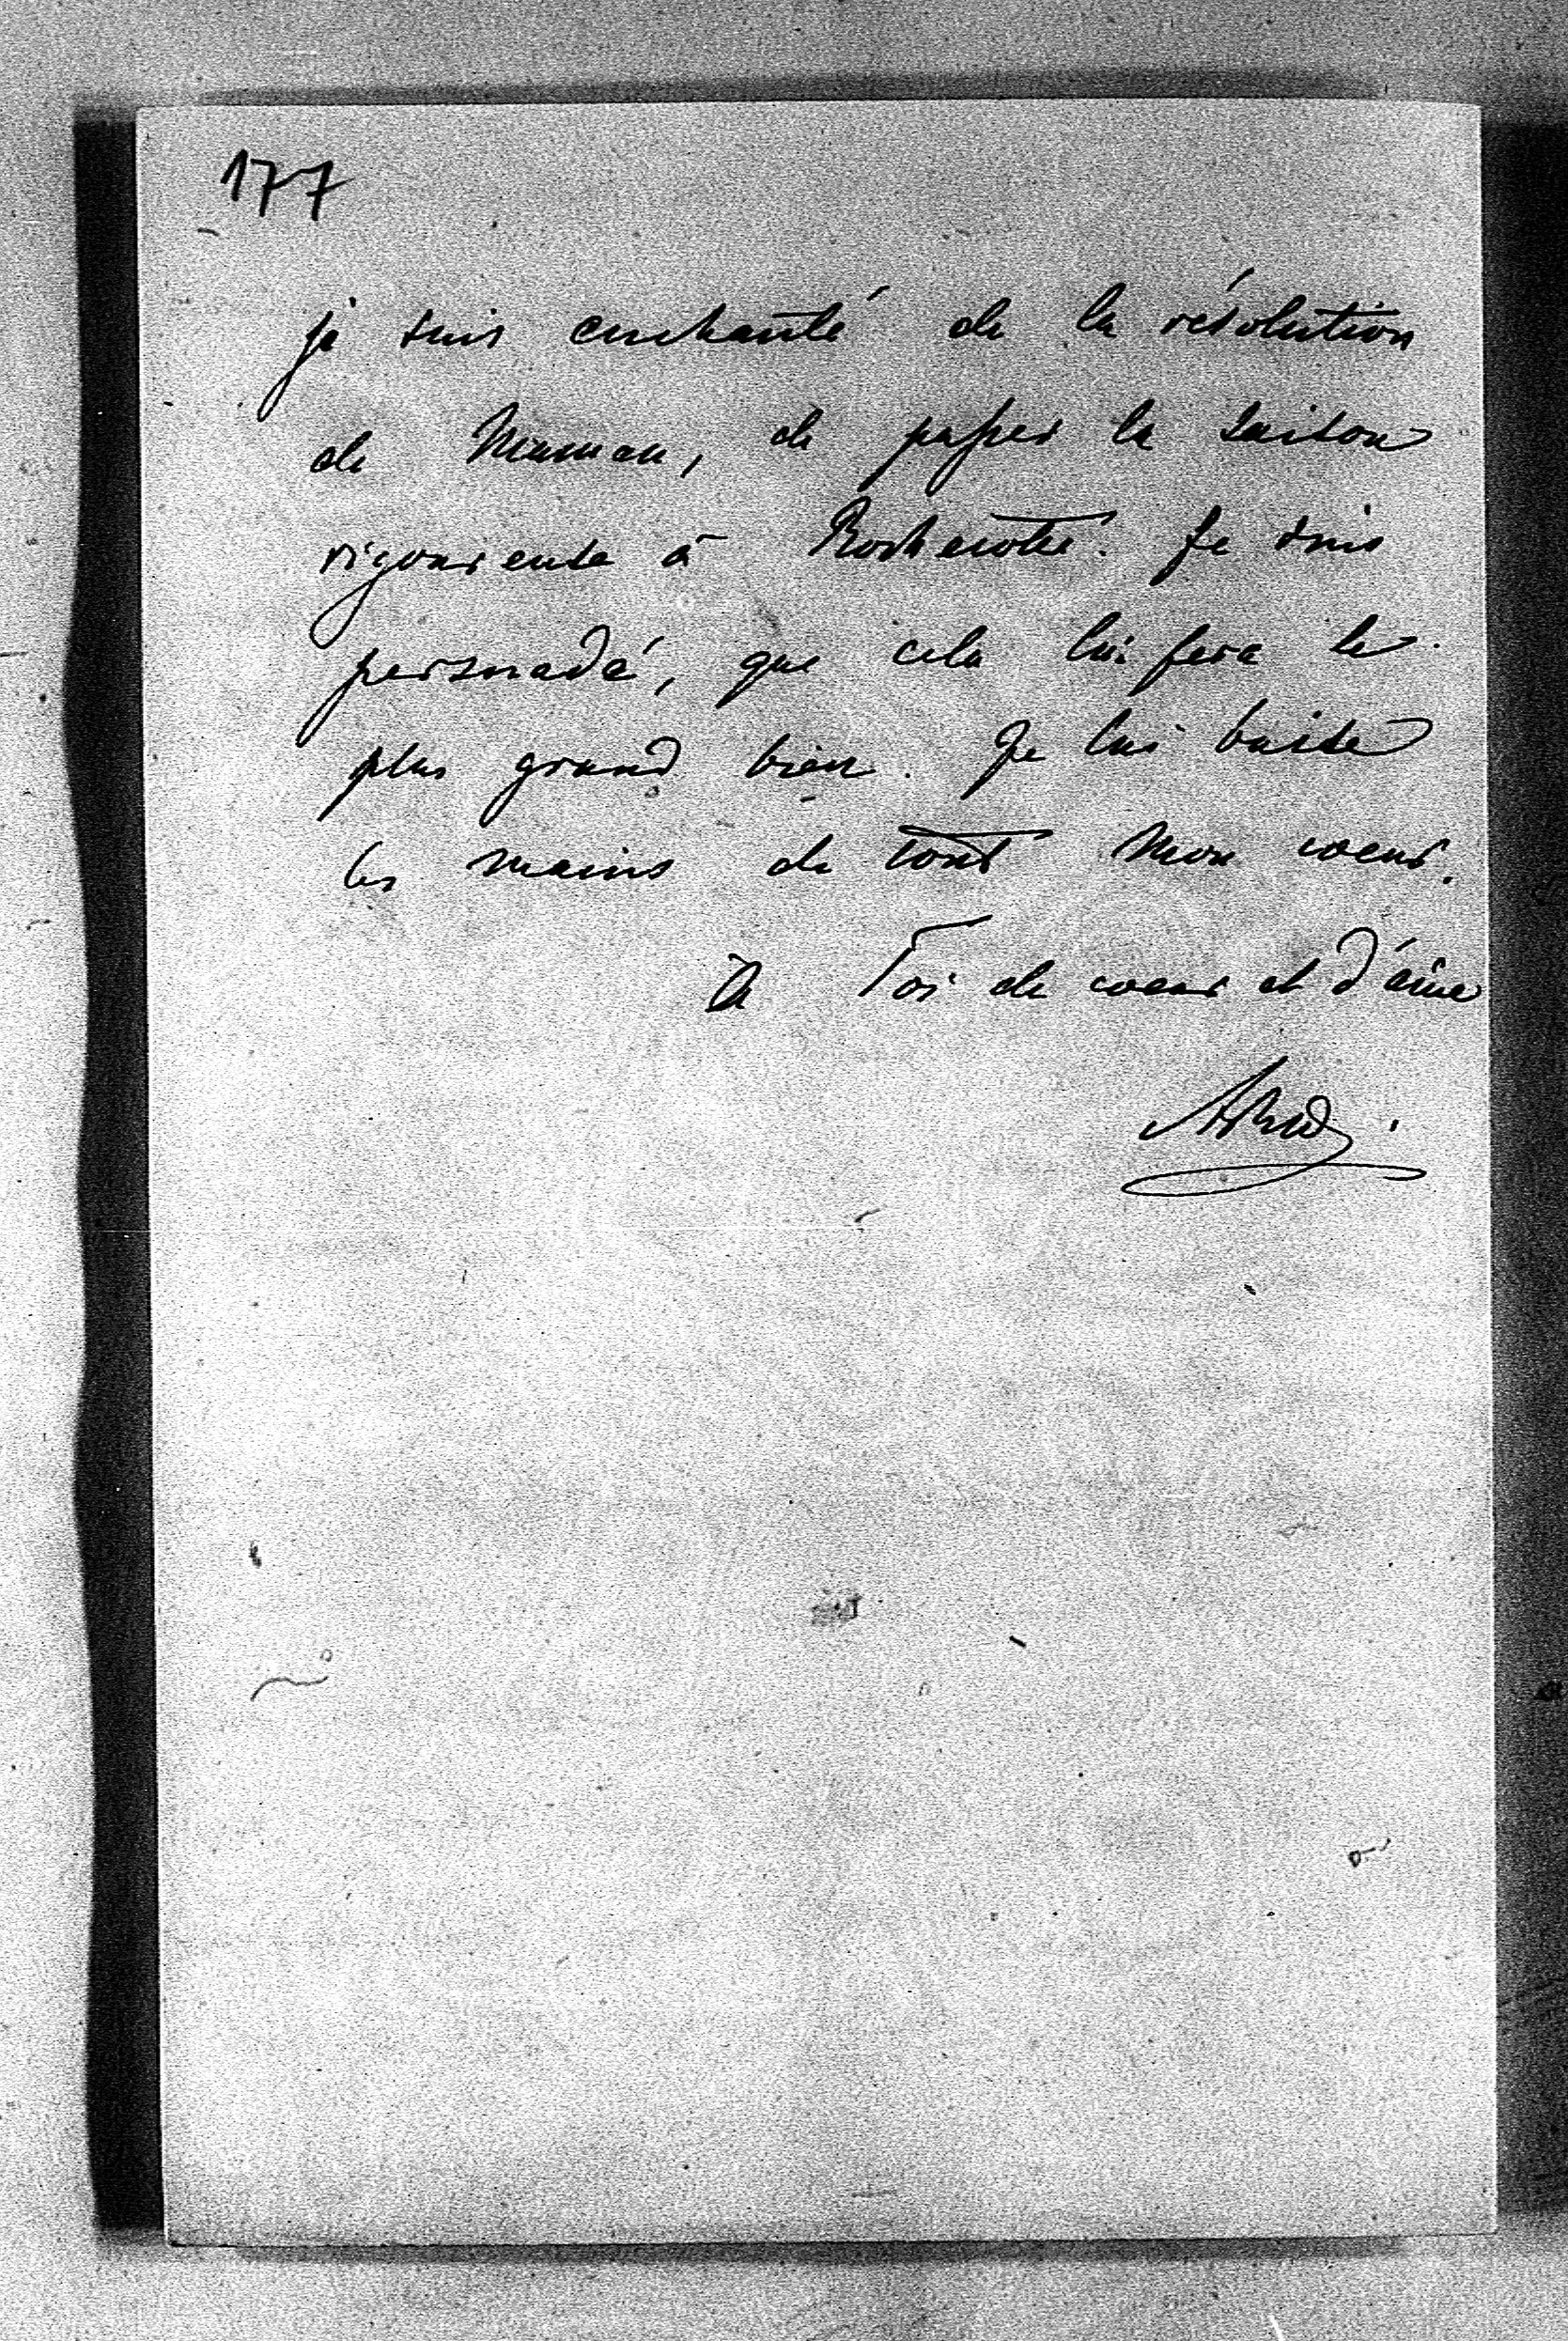 177
je suis enchanté de la résolution
de Maman, de passer la saison
rigoureuse à Rochecotte. Je suis
persuadé, que cela lui fera le
plus grand bien. Je lui baise
les mains de tout mon coeur.
A Toi de coeur et d'âme